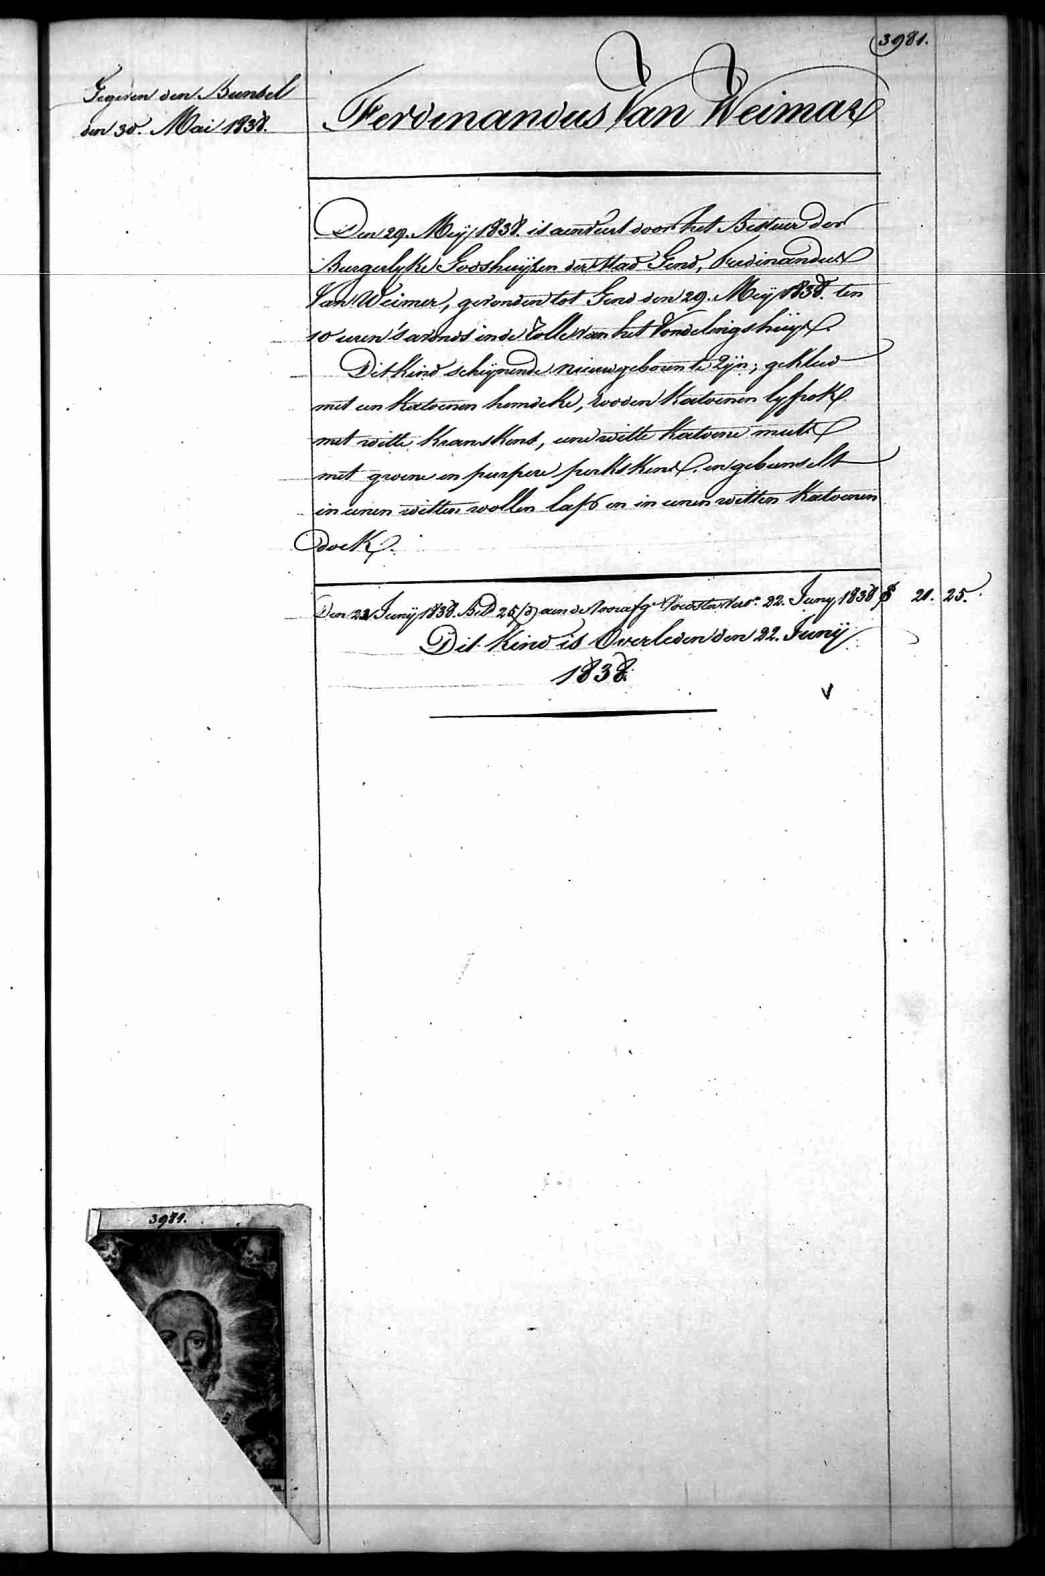 3981.
Gegeven den Bunsel
den 30. Mai 1838.
Ferdinandus Van Weimar
Den 29. Meij 1838. is aenveert door het Bestuer der
Burgerlyke Godshuijsen der Stad Gend, Ferdinandus
Van Weimer, gevonden tot Gend den 29. Meij 1838. ten
10 uren 's avonds in de Rolle van het Vondelingshuijs.
Dit kind schijnende nieuwgeboren te Zijn; gekleed
met een katoenen hemdeke, rooden katoenen lyfrok
met witte Kranskens, eene witte katoene muts
met groene en purpere perkskens. en gebunselt
in eenen witten wollen laps en in eenen witten katoenen
doek.
Den 22 Junij 1838. 22. Juny 1838 21. 25.
Dit kind is Overleden den 22. Junij
1838.
3981.